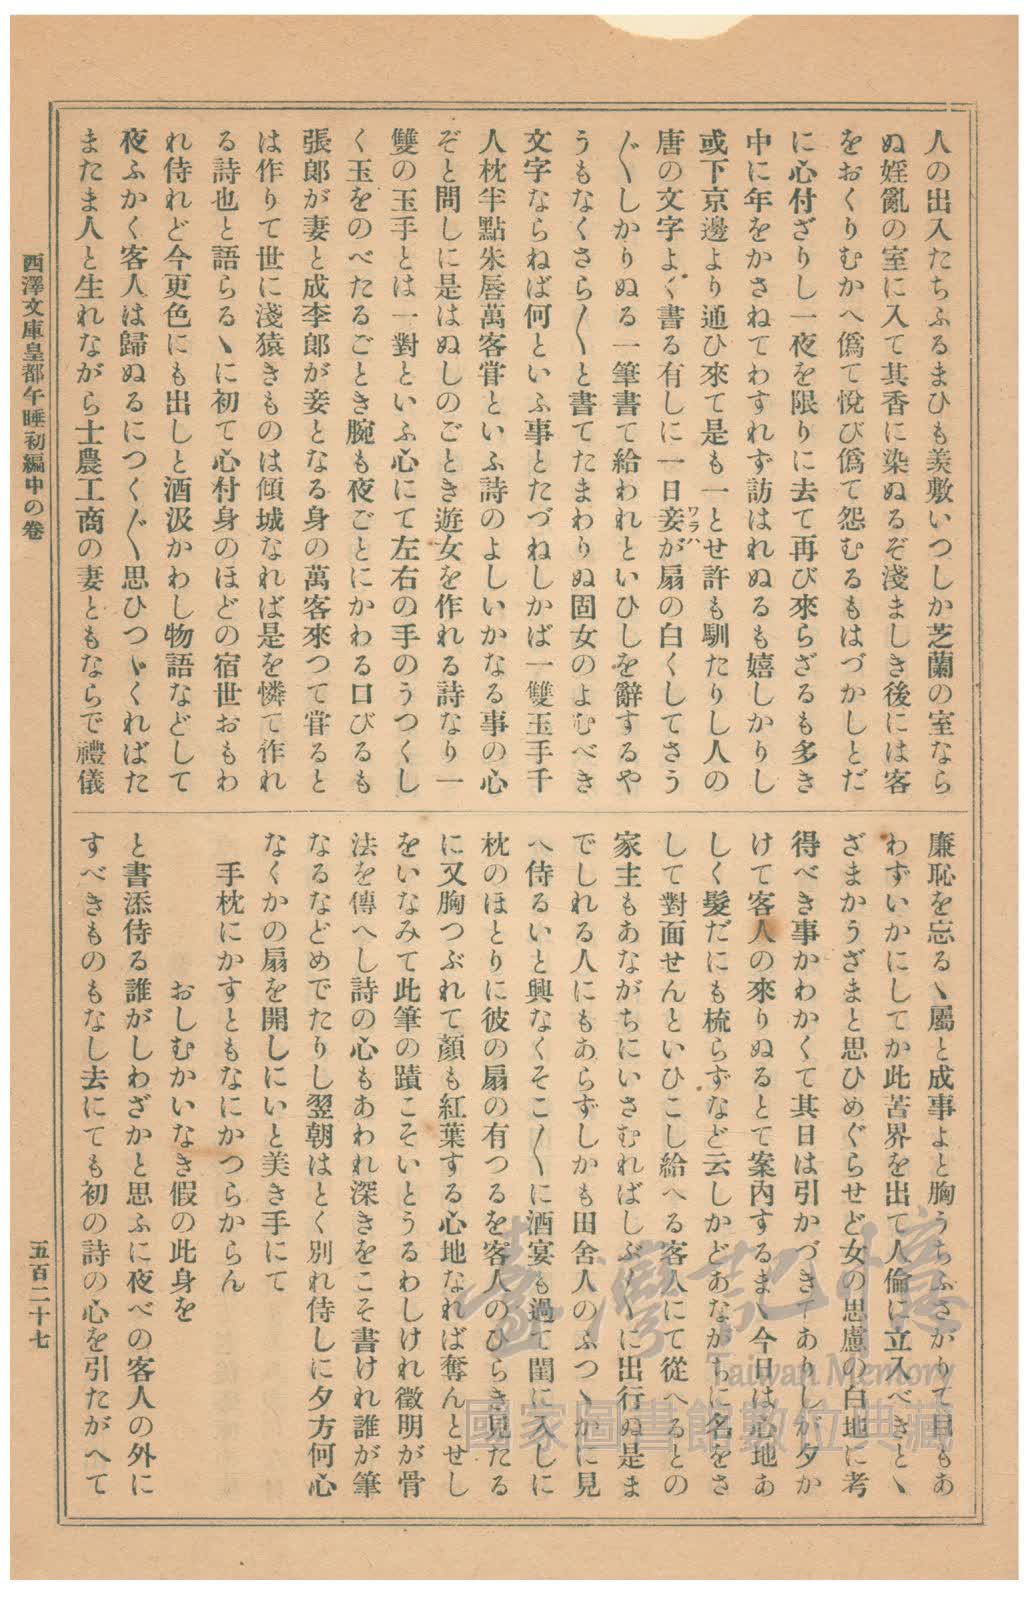 人の出入たちふるまひも羨敷いつしか芝蘭の室なら
ぬ婬亂の室に入て其香に染ぬるぞ淺ましき後には客
をおくりむかへ僞て悅び僞て怨むるもはづかしとだ
に心付ざりし一夜を限りに去て再び來らざるも多き
中に年をかさねてわすれず訪はれぬるも嬉しかりし
或下京邊より通ひ來て是も一とせ許も馴たりし人の
唐の文字よく書る有しに一日妾ワラハが扇の白くしてさう
〲しかりぬる一筆書て給われといひしを辭するや
うもなくさら〱と書てたまわりぬ固女のよむべき
文字ならねば何といふ事とたづねしかば一雙玉手千
人枕半點朱唇萬客甞といふ詩のよしいかなる事の心
ぞと問しに是はぬしのごとき遊女を作れる詩なり一
雙の玉手とは一對といふ心にて左右の手のうつくし
く玉をのべたるごとき腕も夜ごとにかわる口びるも
張郎が妻と成李郎が妾となる身の萬客來つて甞ると
は作りて世に淺猿きものは傾城なれば是を憐て作れ
る詩也と語らるゝに初て心付身のほどの宿世おもわ
れ侍れど今更色にも出しと酒汲かわし物語などして
夜ふかく客人は歸ぬるにつく〲思ひつゞくればた
またま人と生れながら士農工商の妻ともならで禮儀
廉恥を忘るゝ屬と成事よと胸うちふさがりて目もあ
わずいかにしてか此苦界を出て人倫に立入べきとゝ
ざまかうざまと思ひめぐらせど女の思慮の白地に考
得べき事かわかくて其日は引かづきてありしが夕か
けて客人の來りぬるとて案内するまゝ今日は心地あ
しく髮だにも梳らずなど云しかどあながちに名をさ
して對面せんといひこし給へる客人にて從へるとの
家主もあながちにいさむればしぶ〱に出行ぬ是ま
でしれる人にもあらずしかも田舍人のふつゝかに見
へ侍るいと興なくそこ〱に酒宴も過て閨に入しに
枕のほとりに彼の扇の有つるを客人のひらき見たる
に又胸つぶれて顏も紅葉する心地なれば奪んとせし
をいなみて此筆の蹟こそいとうるわしけれ徵明が骨
法を傳へし詩の心もあわれ深きをこそ書けれ誰が筆
なるなどめでたりし翌朝はとく別れ侍しに夕方何心
なくかの扇を開しにいと美き手にて
手枕にかすともなにかつらからん
おしむかいなき假の此身を
と書添侍る誰がしわざかと思ふに夜べの客人の外に
すべきものもなし去にても初の詩の心を引たがへて
西澤文庫皇都午睡初編中の卷
五百二十七
臺灣記憶
Taiwan Memory
國家圖書館數位典藏